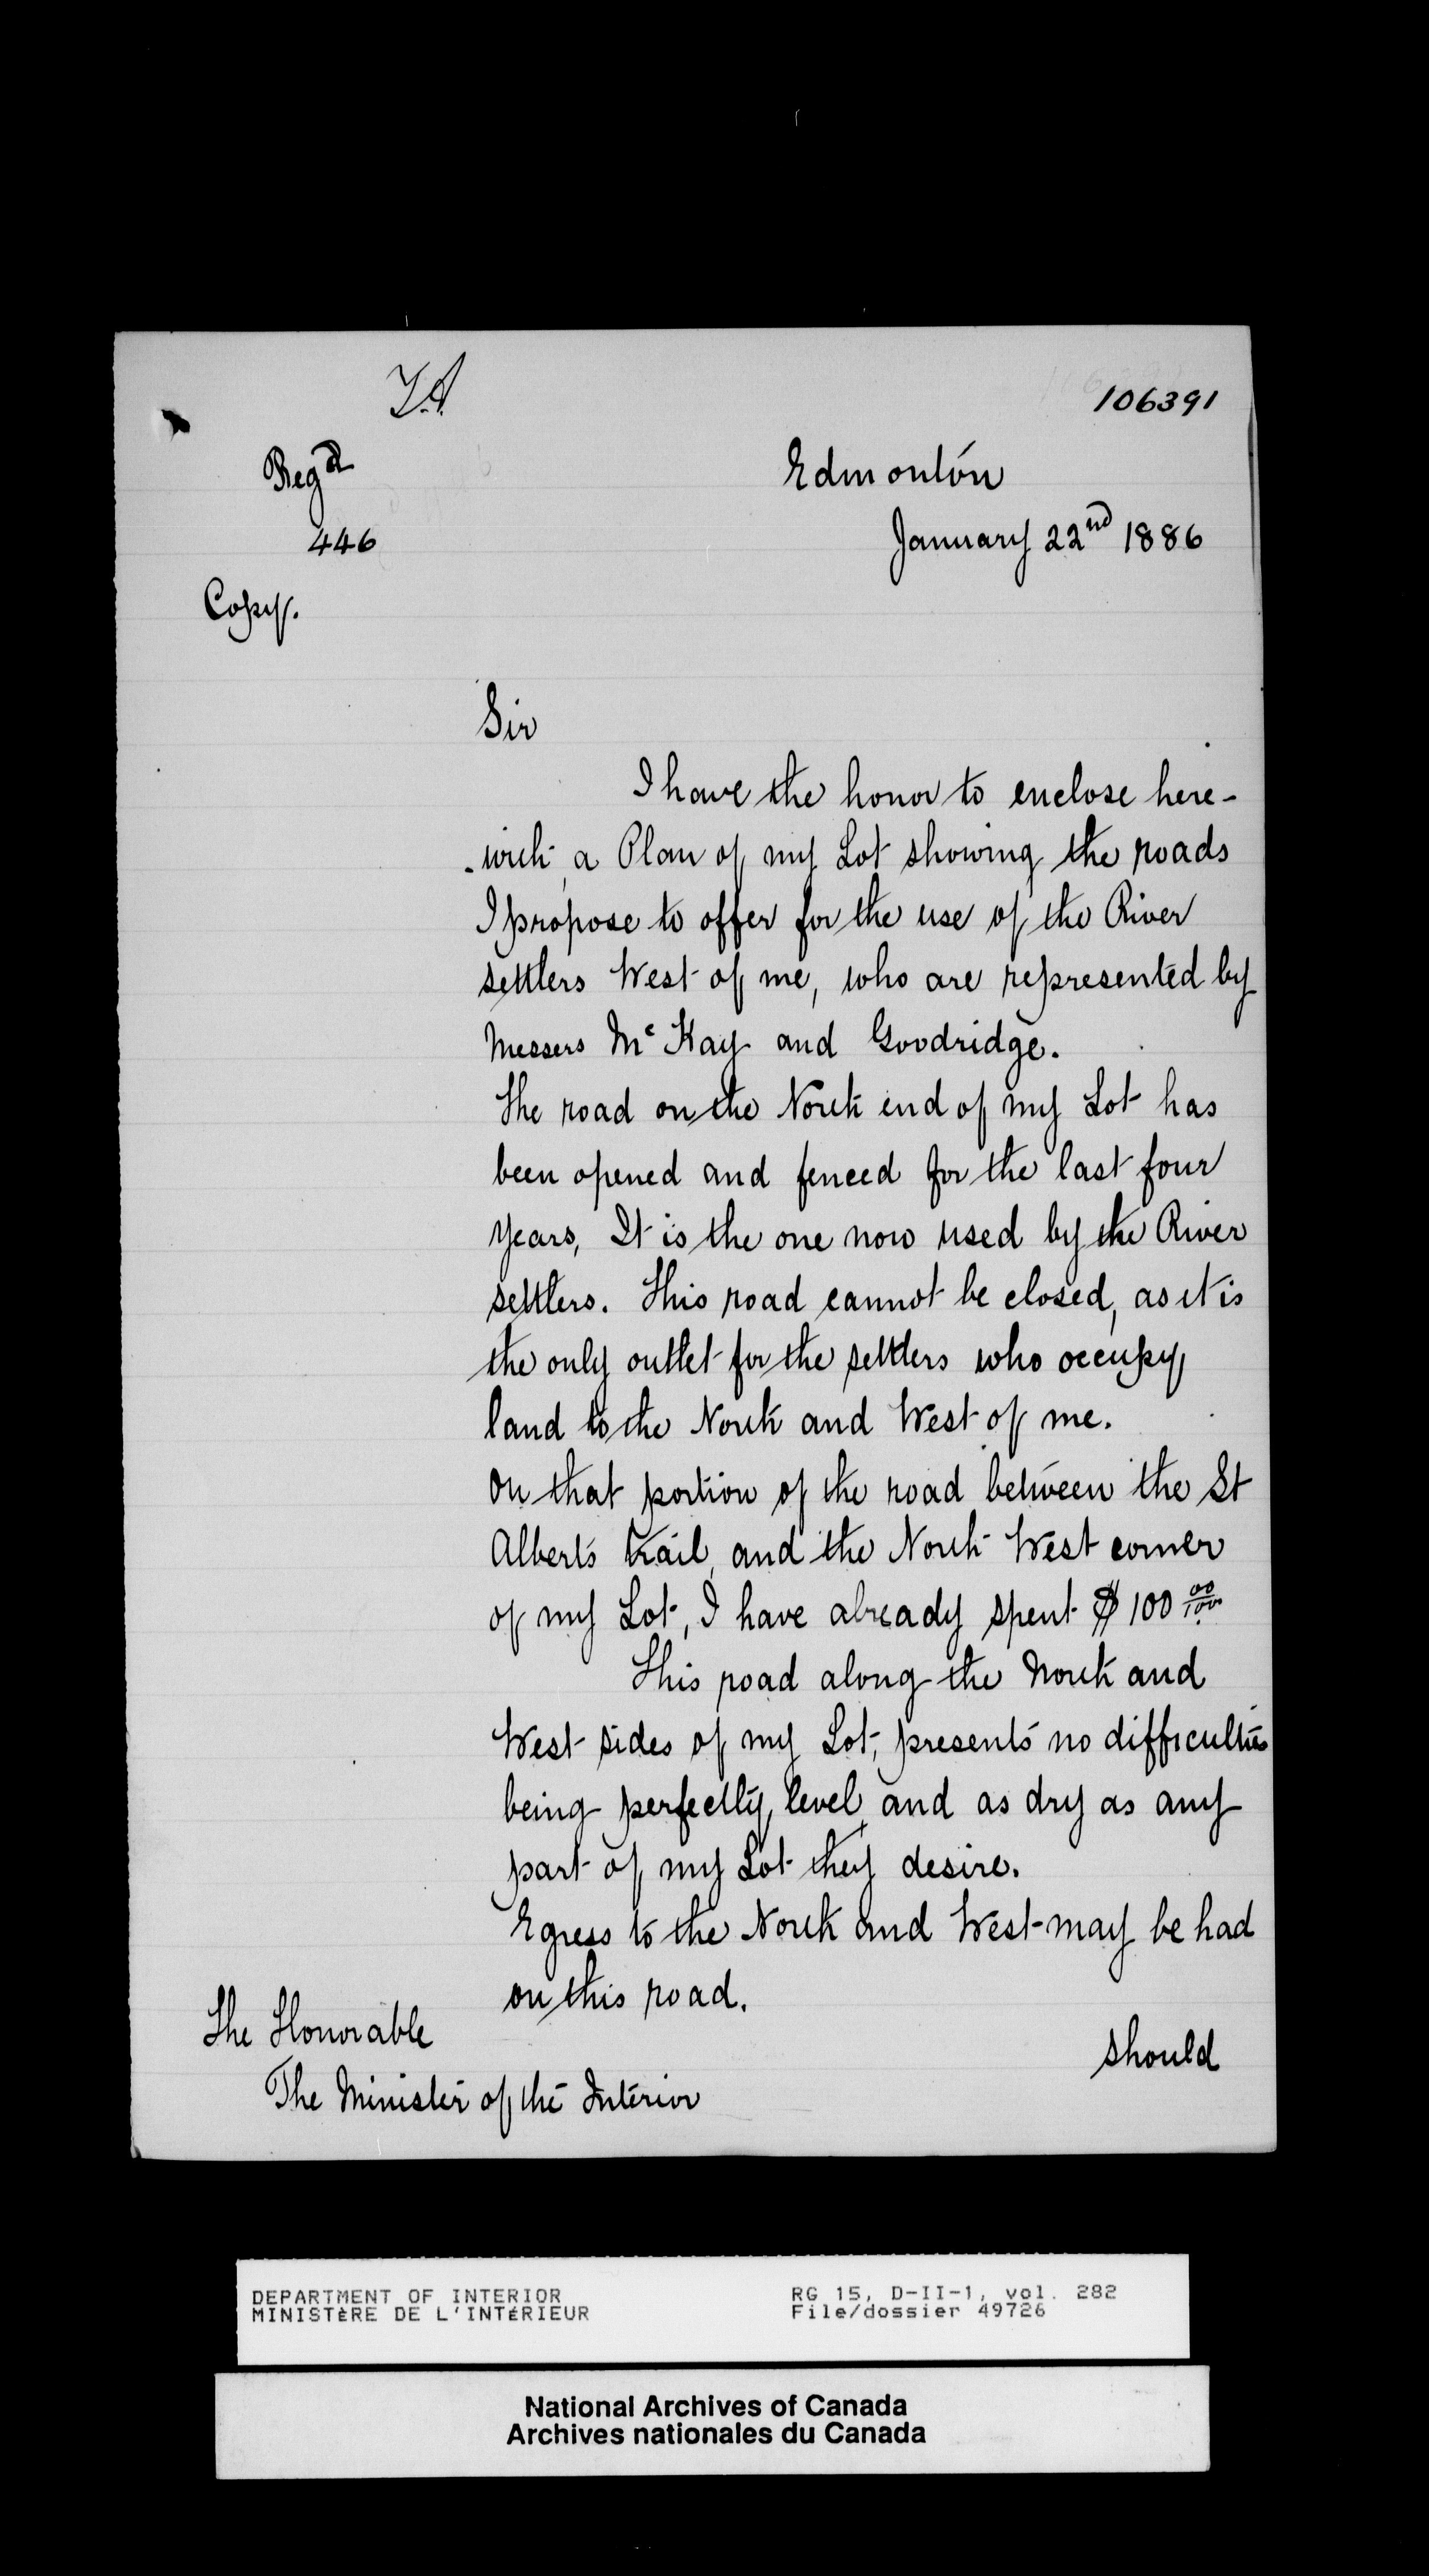 106391
Regd
446
Copy.
Edmonton
January 22nd 1886
Sir
I have the honor to enclose here-
-with, a Plan of my Lot showing the roads
I propose to offer for the use of the River
settlers West of me, who are represented by
Messers Mc Kay and Goodridge.
The road on the North end of my Lot has
been opened and fenced for the last four
years, It is the one now used by the River
settlers. This road cannot be closed, as it is
the only outlet for the settlers who occupy
land to the North and West of me.
On that portion of the road between the St
Alberts trail, and the North West corner
of my Lot, I have already spent $ 100 00/100
This road along the North and
West sides of my Lot, presents no difficulties
being perfectly level, and as dry as any
part of my Lot they desire.
Egress to the North and West may be had
on this road.
should
The Honorable
The Minister of the Interior
DEPARTMENT OF INTERIOR
MINISTÈRE DE L'INTÉRIEUR
RG 15, D-II-1, vol. 282
File/dossier 49726
National Archives of Canada
Archives nationales du Canada